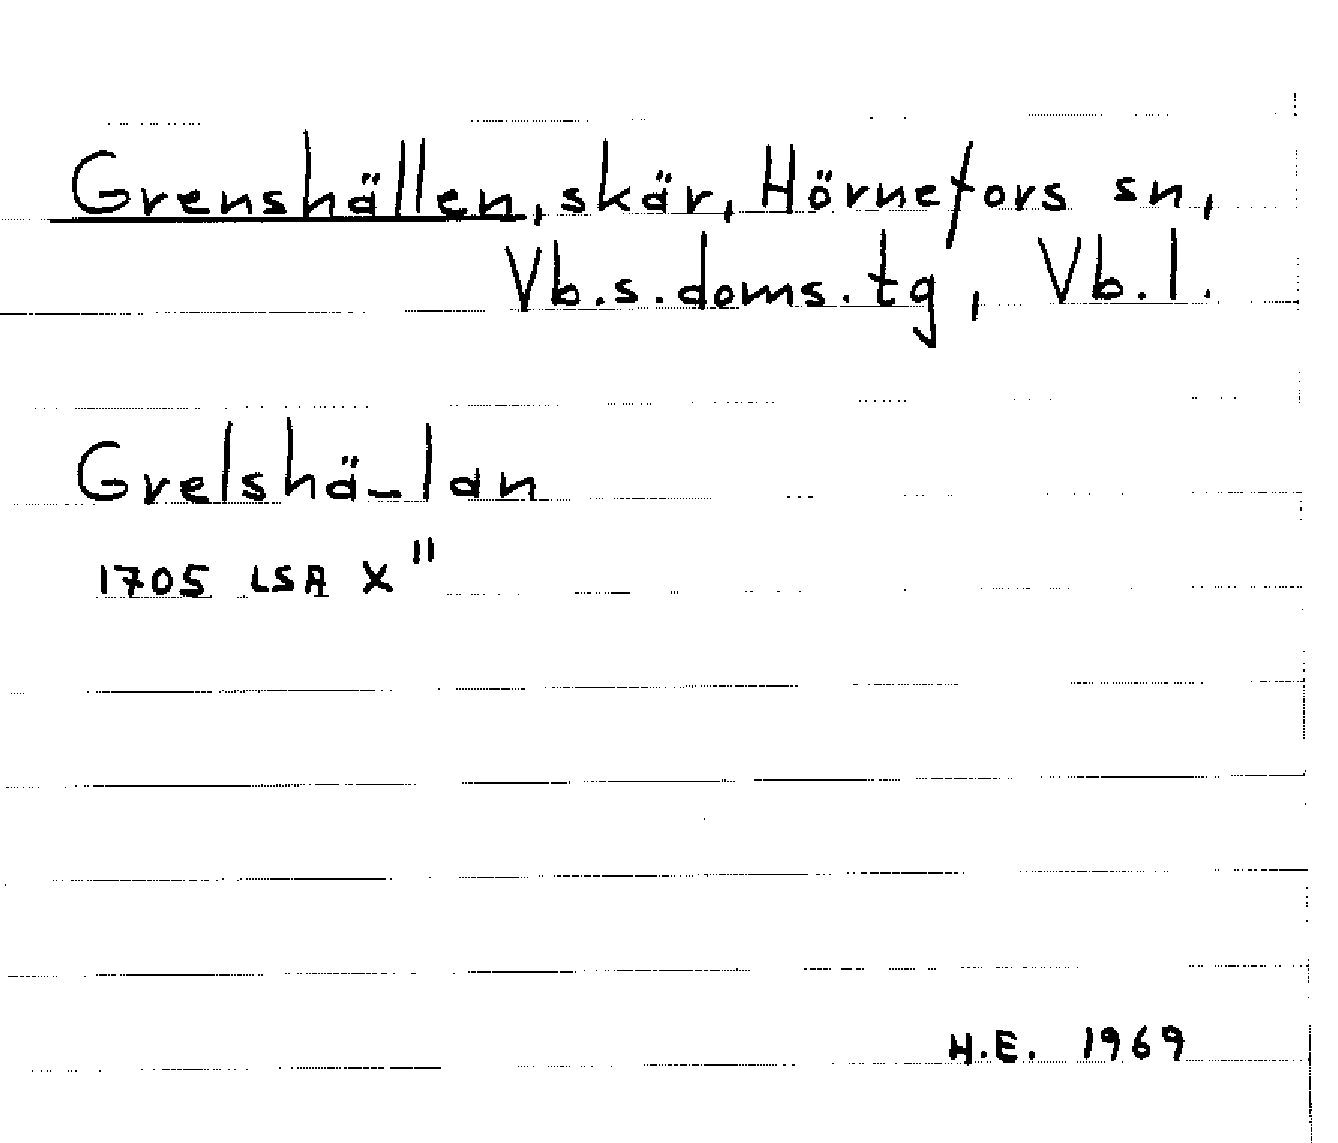 Grenshällen, skär, Hörnefors sn,
Vb.s.doms.tg, Vb.l.
Grelshä-lan
1705 LSA X"
H.E. 1969